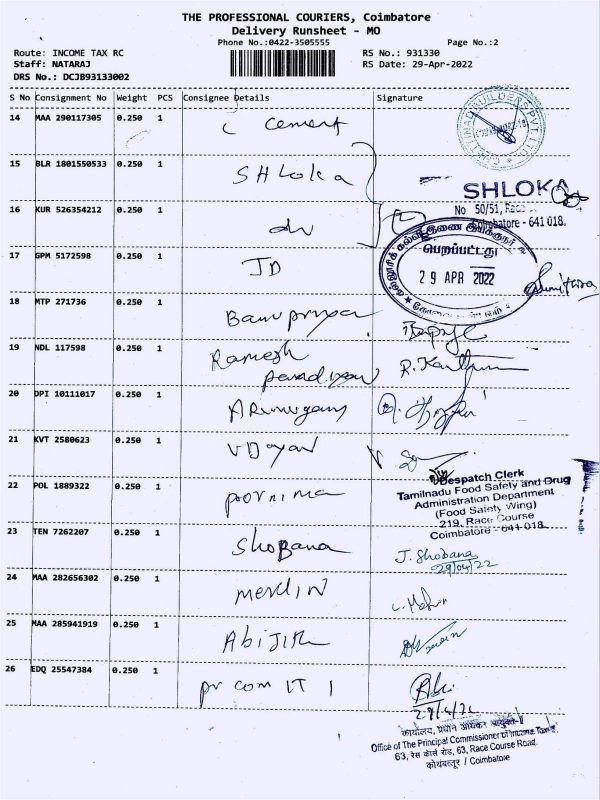 THE PROFESSIONAL COURIERS, Coimbatore
Delivery Runsheet - MO
Phone No.:0422-3505555 Page No.:2
Route: INCOME TAX RC RS No.: 931330
Staff: NATARAJ RS Date: 29-Apr-2022
DRS No.: DCJB93133002
S No Consignment No Weight PCS Consignee Details Signature
14 MAA 290117305 0.250 1 C Cement
15 BLR 1801550533 0.250 1 SHloka
SHLOKA
No 50/51, Race
Coimbatore - 641 018.
16 KUR 526354212 0.250 1
பெறப்பட்டது
29 APR 2022
17 GPM 5172598 0.250 1 JD
18 MTP 271736 0.250 1 Banupriya
19 NDL 117598 0.250 1 Ramesh
20 DPI 10111017 0.250 1 ARumugam
21 KVT 2580623 0.250 1 UDayan
Despatch Clerk
Tamilnadu Food Safety and Drug
Administration Department
(Food Safety Wing)
219, Race Course
Coimbatore - 641 018.
22 POL 1889322 0.250 1 pornima
23 TEN 7262207 0.250 1 Shobana J. Shobana
29/04/22
24 MAA 282656302 0.250 1 merlin
25 MAA 285941919 0.250 1 Abijith
26 EDQ 25547384 0.250 1 pr com IT 1
कार्यालय, प्रधान आयकर आयुक्त-1
Office of The Principal Commissioner of Income Tax-1
63, रेस कोर्स रोड, 63, Race Course Road.
कोयंबत्तूर / Coimbatore